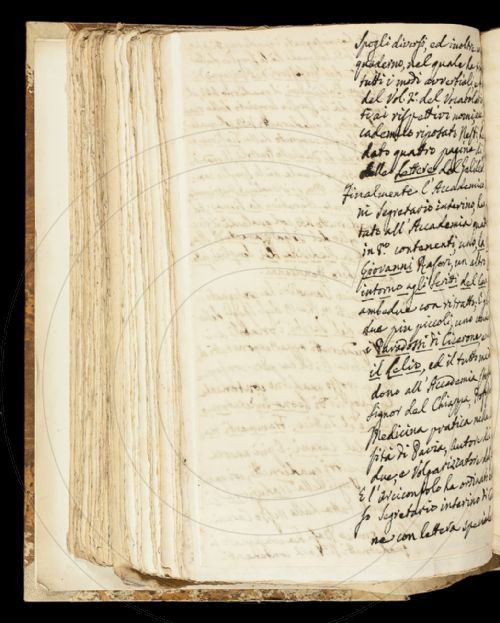 Spogli diversi, ed inoltre
quaderno, nel quale ha
tutti i modi avverbiali
del Vol. 2.º del Vocabola
ti ai rispettivi nomi, e
cademico riposato Rest
dato quattro pagine di
delle Lettere del Galileo
Finalmente l'Accademico
ni Segretario interino, ha
tato all'Accademia quat
in 8.º contenenti, uno la
Giovanni Rasori, un altro
intorno agli Scritti del
ambedue con ritratto, e gli
due più piccoli, uno
i Paradossi di Cicerone
il Lelio, ed il tutto in
dono all'Accademia
Signor del Chiappa, Prof
Medicina pratica nella
sità di Pavia, Autore de
due, e Volgarizzatore del
E l'Arciconsolo ha ordinato
so Segretario interino di
ne con lettera special